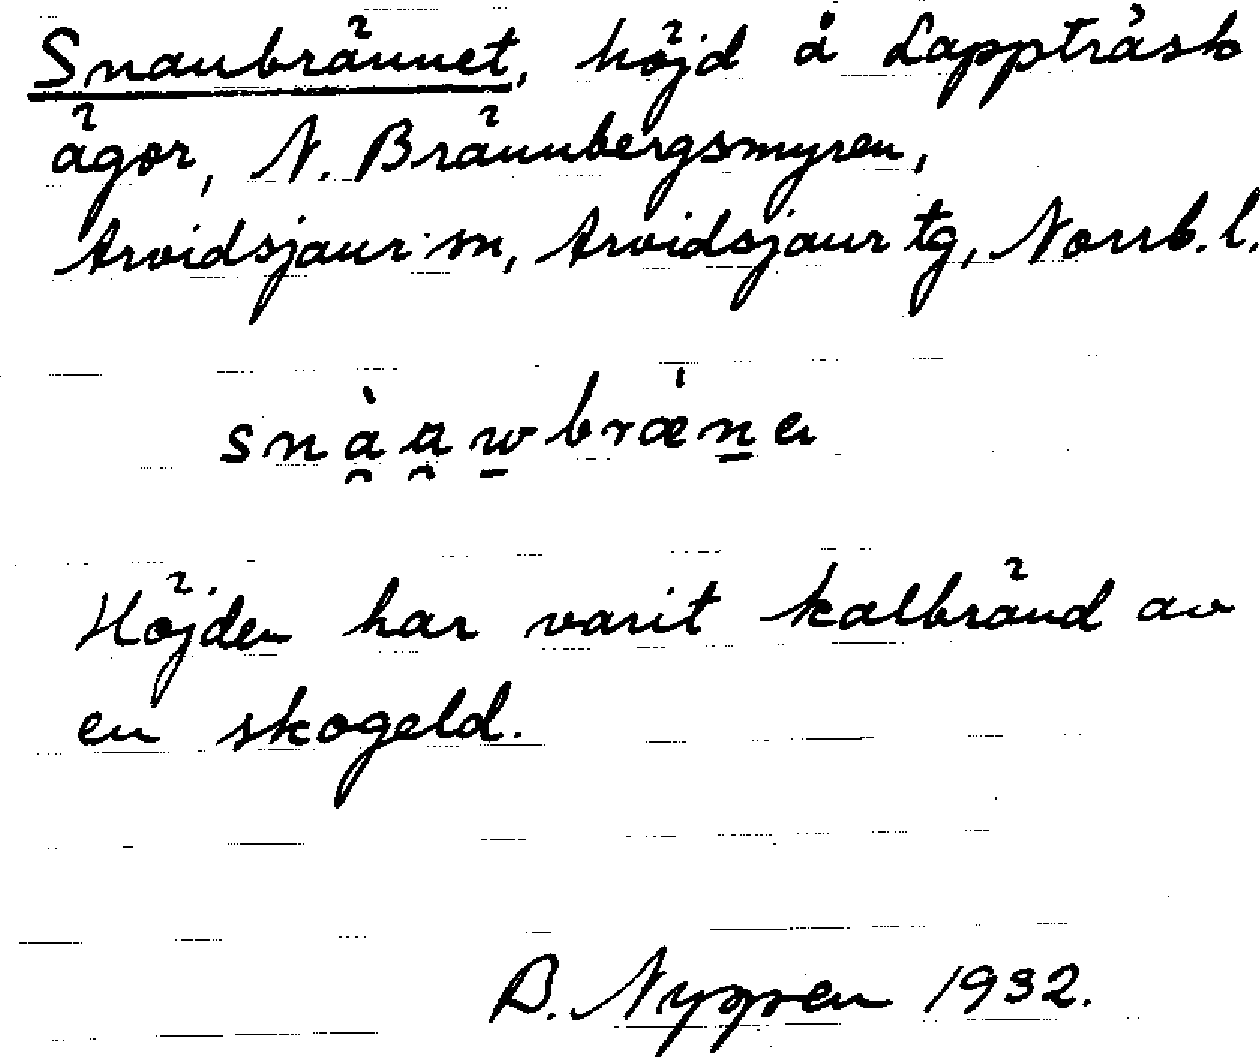 Snaubrännet, höjd å Lappträsk
ägor, N. Brännbergsmyren,
Arvidsjaur sn, Arvidsjaur tg, Norrb. l.
Höjden har varit kalbränd av
en skogeld.
B. Nygren 1932.